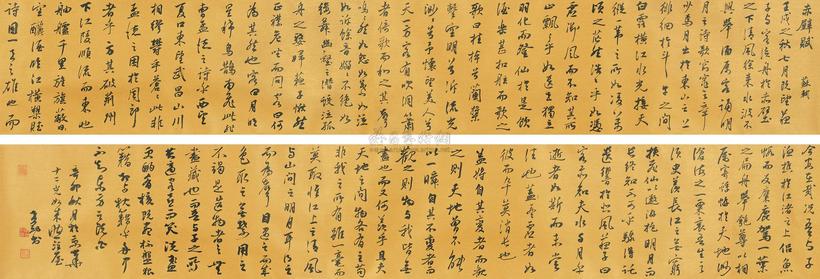 赤壁賦 蘇軾
壬戌之秋七月既望蘇
子與客泛舟於赤壁
之下清風徐來水波不
興舉酒屬客誦明
月之詩歌窈窕之章
少焉月出於東山之上
徘徊於斗牛之間
白露橫江水光接天
縱一葦之所如凌萬
頃之茫然浩浩乎如馮
虛御風而不知其所
止飄飄乎如遺世獨立
羽化而登仙於是飲
酒樂甚扣舷而歌之
歌曰桂棹兮蘭槳
擊空明兮泝流光
渺渺兮予懷望美人兮
天一方客有吹洞簫
者倚歌而和之其聲
嗚嗚然如怨如慕如泣
如訴餘音嫋嫋不絕如
縷舞幽壑之潛蛟泣孤
舟之嫠婦蘇子愀然
正襟危坐而問客曰何
為其然也客曰月明
星稀烏鵲南飛此非
曹孟德之詩乎西望
夏口東望武昌山川
相繆鬱乎蒼蒼此非
孟德之困於周郎
者乎方其破荊州
下江陵順流而東也
舳艫千里旌旗蔽空
釃酒臨江橫槊賦
詩固一世之雄也而
今安在哉況吾與子
漁樵於江渚之上侶魚
蝦而友麋鹿駕一葉
之扁舟舉匏尊以相
屬寄蜉蝣於天地渺
滄海之一粟哀吾生之
須臾羨長江之無窮
挾飛仙以遨遊抱明月
而長終知不可乎驟得託
遺響於悲風蘇子曰
客亦知夫水與月乎
逝者如斯而未嘗
往也盈虛者如
彼而卒莫消長也
蓋將自其變者而觀
之則天地曾不能
以一瞬自其不變者而
觀之則物與我皆無
盡也而又何羨乎且夫
天地之間物各有主苟
非我之所有雖一毫而
莫取惟江上之清風
與山間之明月耳得之
而為聲目遇之而成
色取之無禁用之
不竭是造物者之無
盡藏也而吾與子之所
共適客喜而笑洗盞
更酌肴核既盡杯盤狼
籍相與枕藉乎舟中
不知東方之既白
辛卯秋月於